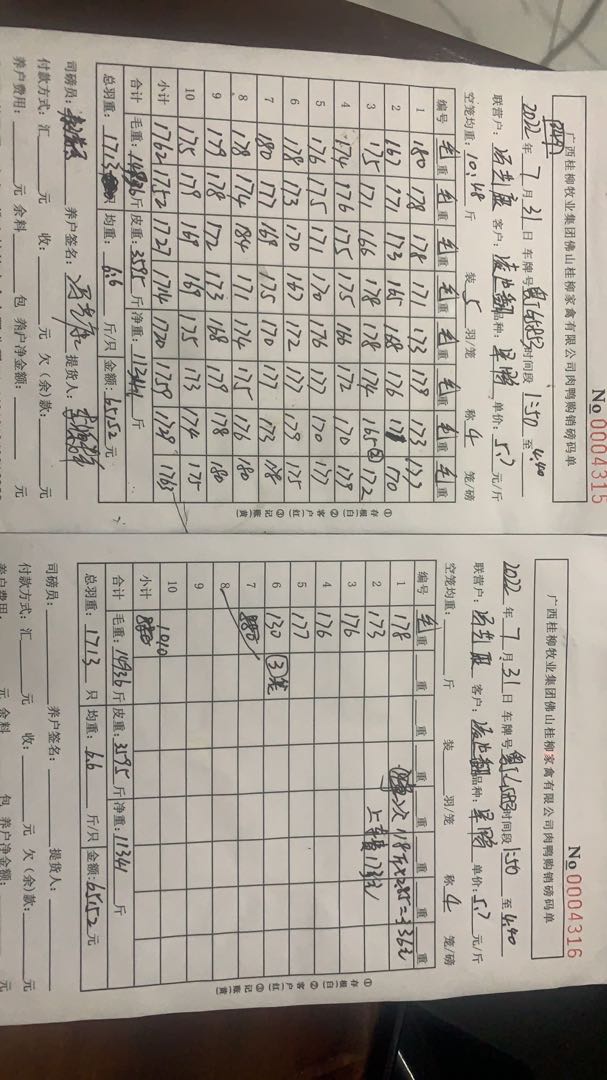 No 0004315
广西桂柳牧业集团佛山桂柳家禽有限公司肉鸭购销磅码单
2022 年 7 月 31 日 车牌号 时间段 1:50 至 4:40
联营户: 客户: 品种: 单价: 5.7 元/斤
空笼均重: 10.48 斤 装 5 羽/笼 称 4 笼/磅
编号 毛重 毛重 毛重 毛重 毛重 毛重 毛重 毛重
1 180 178 178 171 173 179 173 177
2 167 171 173 165 168 176 178 170
3 175 171 166 178 178 174 165② 172
4 174 176 175 175 166 172 170 179
5 176 175 171 170 176 177 170 177
6 178 173 170 167 172 177 179 175
7 180 177 169 175 170 177 173 178
8 178 174 184 174 174 175 176 180
9 179 178 172 173 168 179 178 180
10 175 179 169 169 175 173 174 175
小计 1762 1752 1727 1714 1720 1759 1729 1763
合计 毛重: 14936 斤 皮重: 3595 斤 净重: 11341 斤
总羽重: 1713 只 均重: 6.6 斤/只 金额: 65152 元
司磅员: 养户签名: 提货人:
付款方式: 汇 元 收: 元 欠(余)款: 元
养户费用: 元 余料 包 养户净金额: 元
①存根(白) ②客户(红) ③记账(黄)
No 0004316
广西桂柳牧业集团佛山桂柳家禽有限公司肉鸭购销磅码单
2022 年 7 月 31 日 车牌号 时间段 1:50 至 4:40
联营户: 客户: 品种: 单价: 5.7 元/斤
空笼均重: 斤 装 羽/笼 称 4 笼/磅
编号 毛重 重 重 重 重 重 重 重
1 178
2 173
3 176
4 176
5 177
6 130 ③笼
7
8
9
10
小计 1010
118元×2.85=336元
上车费 173元
合计 毛重: 14936 斤 皮重: 3595 斤 净重: 11341 斤
总羽重: 1713 只 均重: 6.6 斤/只 金额: 65152 元
司磅员: 养户签名: 提货人:
付款方式: 汇 元 收: 元 欠(余)款: 元
养户费用: 元 余料 包 养户净金额: 元
①存根(白) ②客户(红) ③记账(黄)